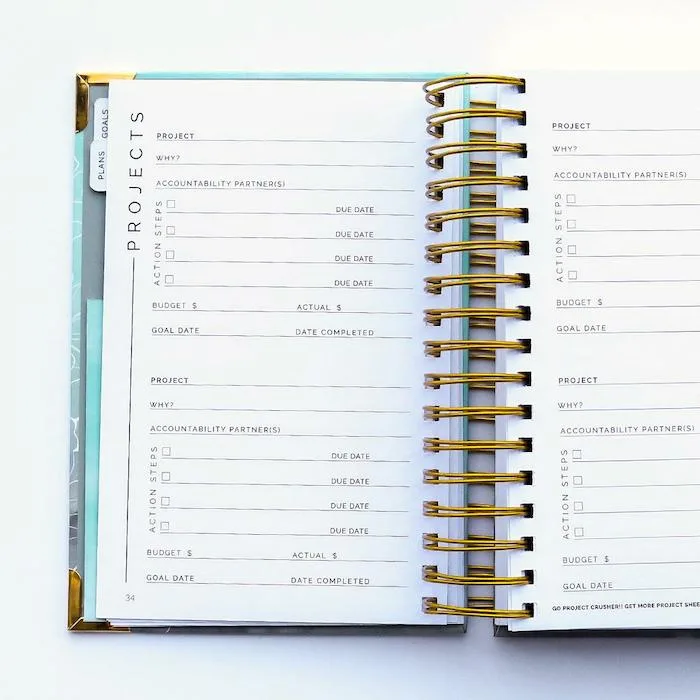 GOALS
PLANS
PROJECTS
PROJECT
WHY?
ACCOUNTABILITY PARTNER(S)
ACTION STEPS
DUE DATE
DUE DATE
DUE DATE
DUE DATE
BUDGET $ ACTUAL $
GOAL DATE DATE COMPLETED
PROJECT
WHY?
ACCOUNTABILITY PARTNER(S)
ACTION STEPS
DUE DATE
DUE DATE
DUE DATE
DUE DATE
BUDGET $ ACTUAL $
GOAL DATE DATE COMPLETED
34
PROJECT
WHY?
ACCOUNTABILITY PARTNER(S)
ACTION STEPS
BUDGET $
GOAL DATE
PROJECT
WHY?
ACCOUNTABILITY PARTNER(S)
ACTION STEPS
BUDGET $
GOAL DATE
GO PROJECT CRUSHER!! GET MORE PROJECT SHEE